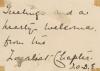 Greetings and a
hearty welcome
from the
Loyalist Chapter
I.O.D.E.